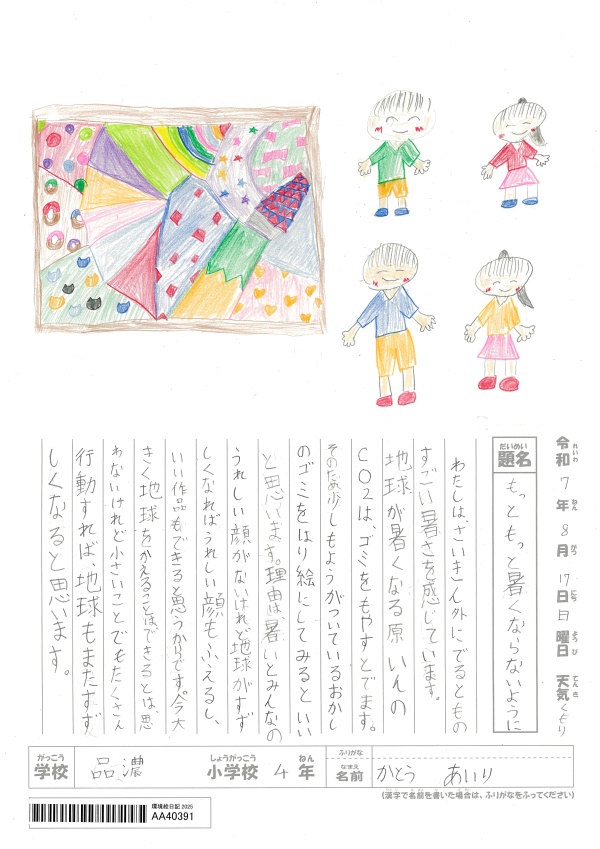 令和 7年 8月 17日 日曜日 天気 くもり
れいわ ねん がつ にち ようび てんき
だいめい
題名 もっともっと暑くならないように
わたしは、さいきん外にでるともの
すごい暑さを感じています。
地球が暑くなる原いんの
CO2は、ゴミをもやすとでます。
そのため少しもようがついているおかし
のゴミをはり絵にしてみるといい
と思います。理由は、暑いとみんなの
うれしい顔がないけれど地球がすず
しくなればうれしい顔もふえるし、
いい作品もできると思うからです。今大
きく地球をかえることはできるとは、思
わないけれど小さいことでもたくさん
行動すれば、地球もまたすず
しくなると思います。
がっこう しょうがっこう ねん ふりがな
学校 品濃 小学校 4年
なまえ
名前 かとう あいり
(漢字で名前を書いた場合は、ふりがなをふってください)
環境絵日記 2025
AA40391